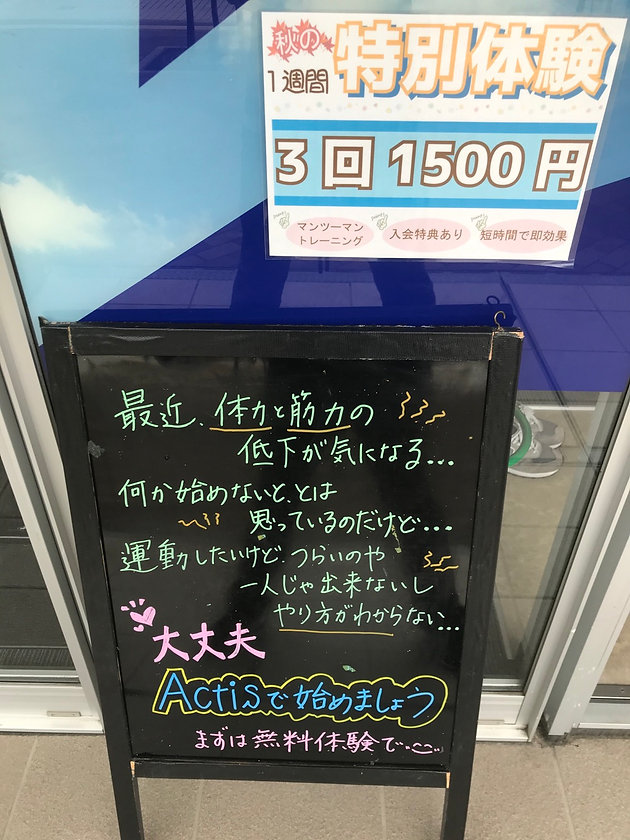 秋の
1週間
特別体験
3回1500円
マンツーマン
トレーニング
入会特典あり
短時間で即効果
最近、体力と筋力の
低下が気になる...
何か始めないと、とは
思っているのだけど...
運動したいけど、つらいのや
一人じゃ出来ないし
やり方がわからない...
大丈夫
Actisで始めましょう
まずは無料体験で